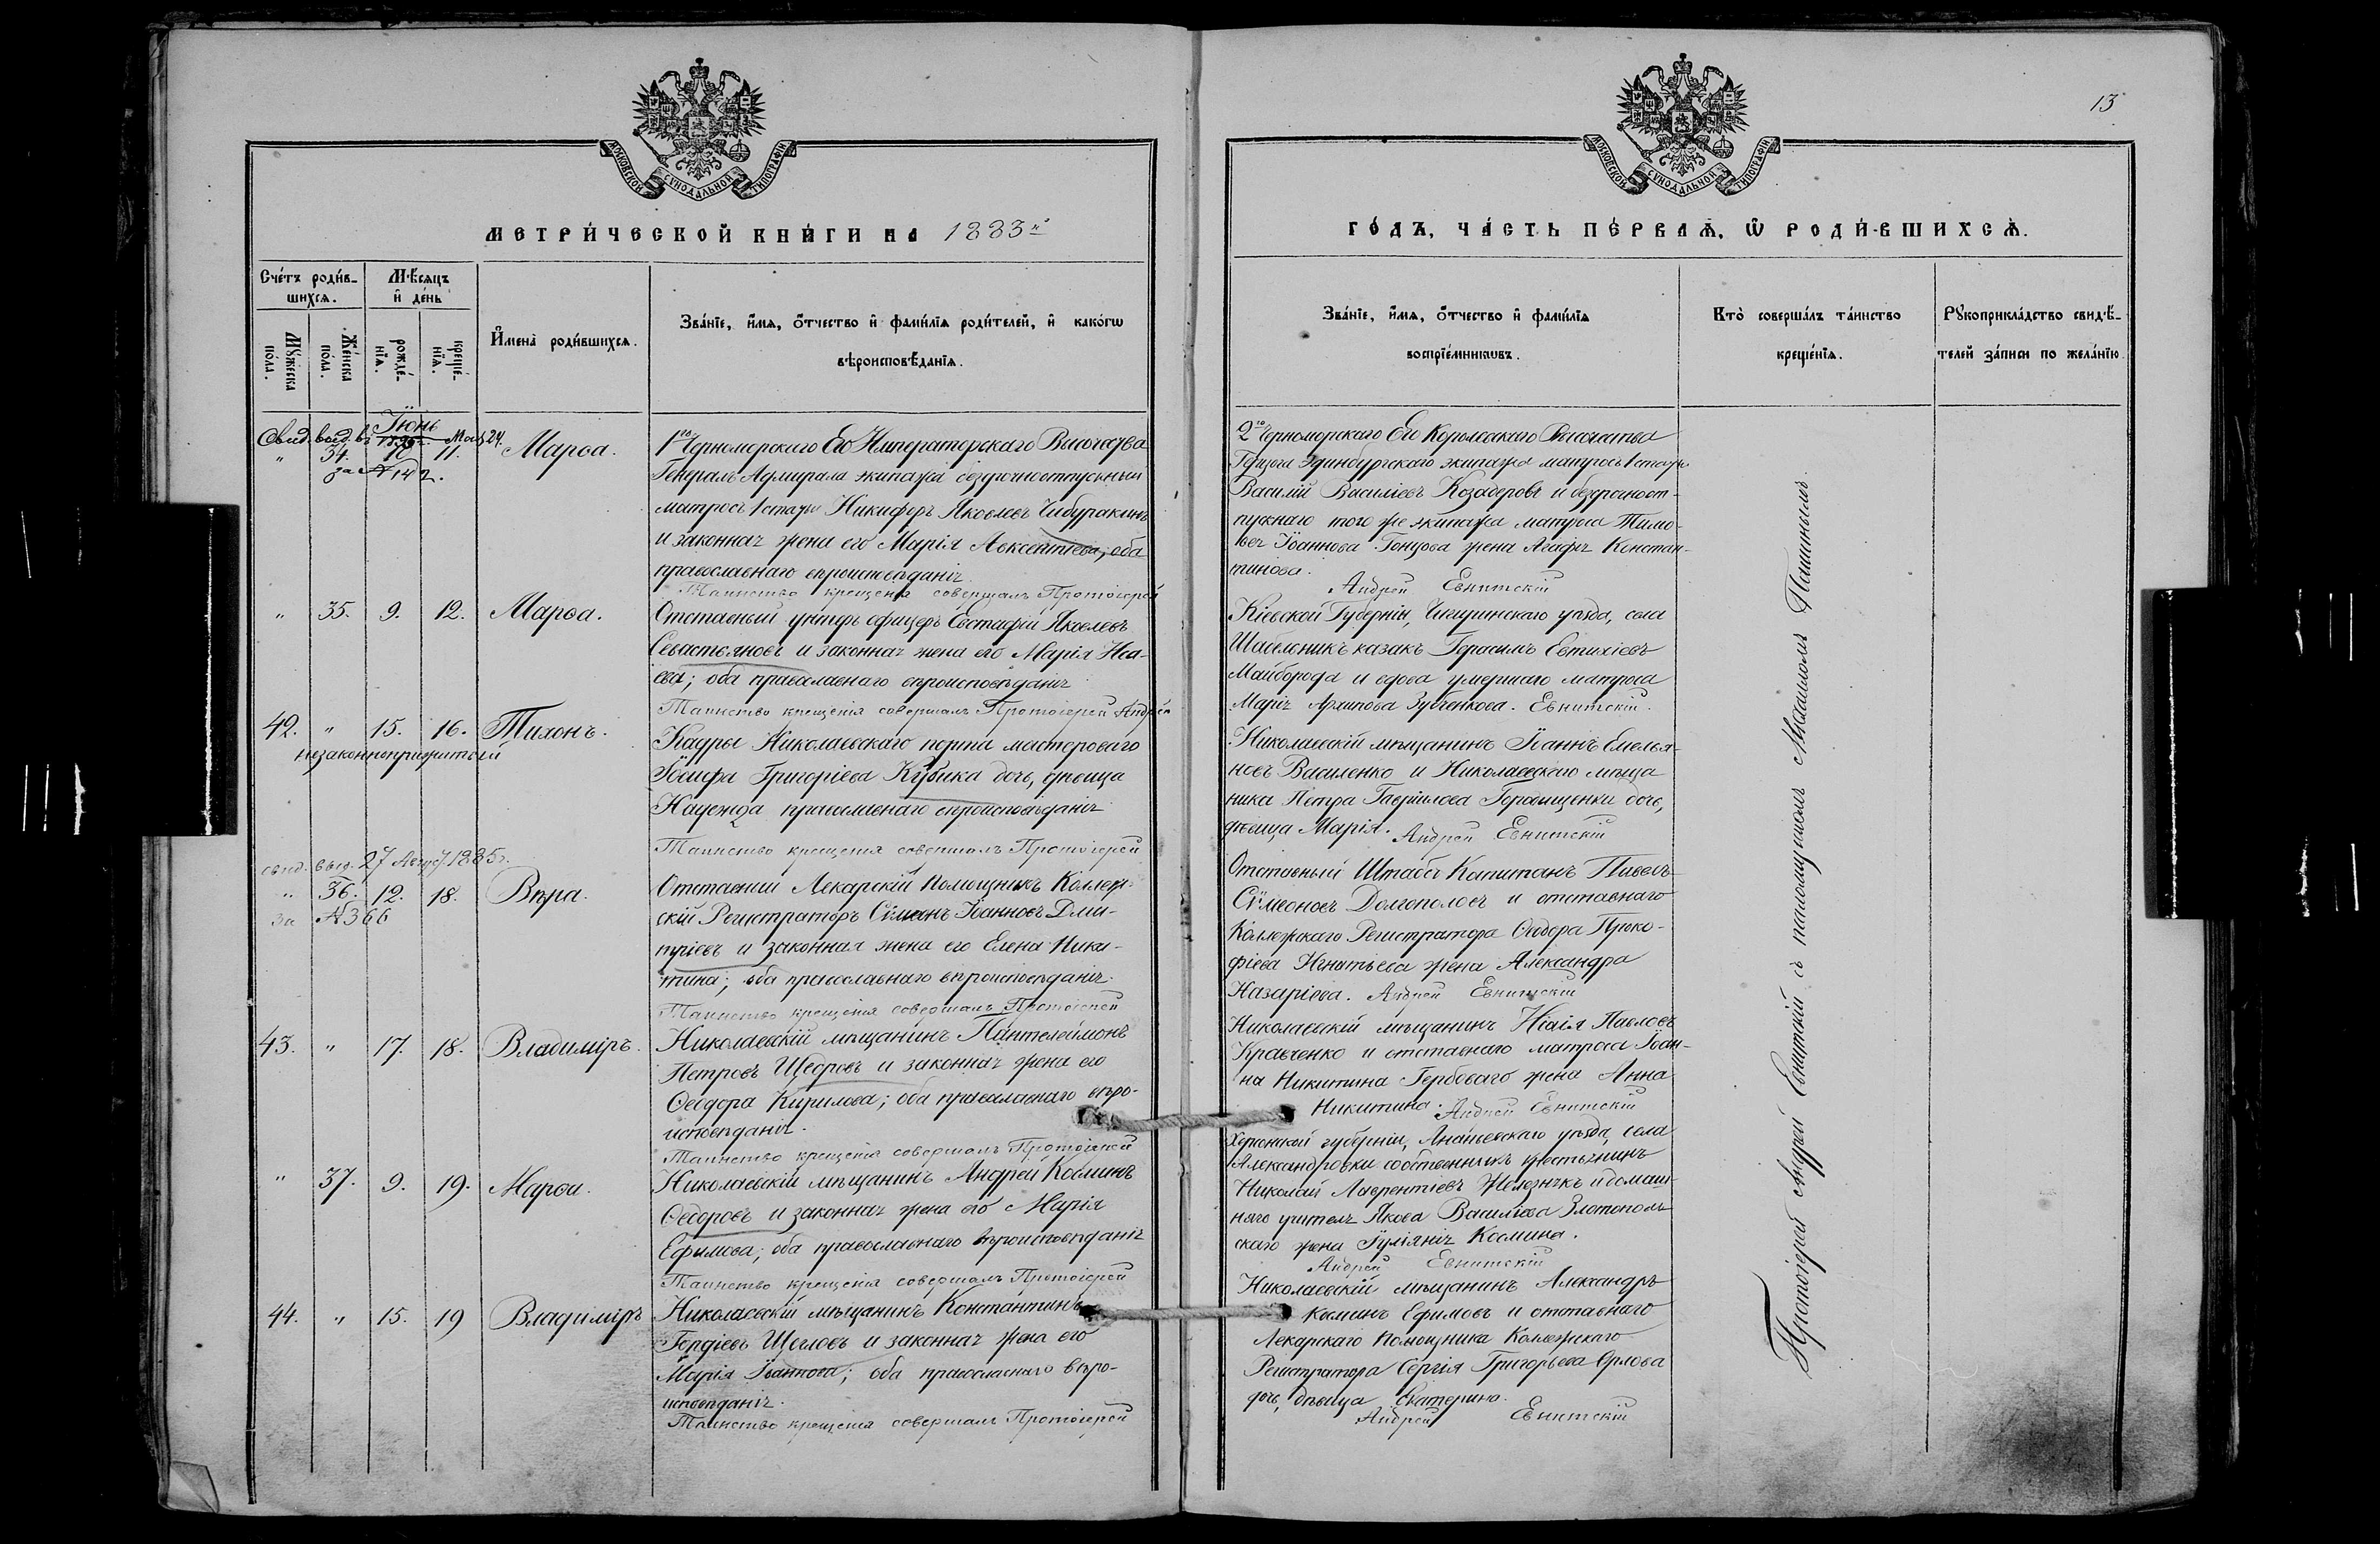 13
МОСКОВСКОЙ СѴНОДАЛЬНОЙ ТИПОГРАФІИ
МЕТРИ́ЧЕСКОЙ КНИ́ГИ НА 1883й
Сче́тъ роди́в-
шихсѧ.
Мѣ́сяцъ
и҆ де́нь
Му́жеска
по́ла.
Же́нска
по́ла.
рожде́-
нїѧ.
креще́-
нїѧ.
И҆мена̀ роди́вшихсѧ.
Зва́нїе, и҆́мѧ, ѻ҆́тчество и҆ фами́лїѧ роди́телей, и҆ како́гѡ
вѣроисповѣ́данїѧ.
Свид. выд. въ Іюнь Мая 24.
" 34. 10 11. Марѳа.
за № 142.
1го Черноморскаго Его Императорскаго Высочества
Генералъ Адмирала экипажа безсрочноотпускный
матросъ 1 статьи Никифоръ Яковлевъ Чибуракинъ
и законная жена его Марія Авксентіева; оба
православнаго вѣроисповѣданія.
Таинство крещенія совершалъ Протоіерей
" 35. 9. 12. Марѳа.
Отставный унтеръ офицеръ Евстафій Яковлевъ
Севастьяновъ и законная жена его Марія Иса-
ева; оба православнаго вѣроисповѣданія
Таинство крещенія совершалъ Протоіерей Андрей
42. " 15. 16. Тихонъ.
незаконноприжитый
Кадры Николаевскаго порта мастероваго
Іосифа Григоріева Кубика дочь, дѣвица
Надежда православнаго вѣроисповѣданія
Таинство крещенія совершалъ Протоіерей
свид. выд. 27 Август. 1885г.
" 36. 12. 18. Вѣра.
за №366
Отставный Лекарскій Помощникъ Коллеж-
скій Регистраторъ Сѵмеонъ Іоанновъ Дми-
тріевъ и законная жена его Елена Ники-
тина; оба православнаго вѣроисповѣданія.
Таинство крещенія совершалъ Протоіерей
43. " 17. 18. Владиміръ.
Николаевскій мѣщанинъ Пантелеймонъ
Петровъ Щедровъ и законная жена его
Ѳеодора Кирилова; оба православнаго вѣро-
исповѣданія.
Таинство крещенія совершалъ Протоіерей
" 37. 9. 19. Марѳа.
Николаевскій мѣщанинъ Андрей Косминъ
Ѳедоровъ и законная жена его Марія
Ефимова; оба православнаго вѣроисповѣданія
Таинство крещенія совершалъ Протоіерей
44. " 15. 19 Владиміръ
Николаевскій мѣщанинъ Константинъ
Гордіевъ Щегловъ и законная жена его
Марія Іоаннова; оба православнаго вѣро-
исповѣданія.
Таинство крещенія совершалъ Протоіерей
МОСКОВСКОЙ СѴНОДАЛЬНОЙ ТИПОГРАФІИ
ГО́ДЪ, ЧА́СТЬ ПЕ́РВАѦ, Ѽ РОДИ́ВШИХСѦ.
Зва́нїе, и҆́мѧ, ѻ҆́тчество и҆ фами́лїѧ
воспрїе́мникѡвъ.
Кто̀ соверша́лъ та́инство
креще́нїѧ.
Рꙋкоприкла́дство свидѣ́-
телей за́писи по жела́нїю.
2го Черноморскаго Его Королевскаго Высочества
Герцога Эдинбургскаго экипажа матросъ 1 статьи
Василій Василіевъ Козадеровъ и безсрочноот-
пускнаго того же экипажа матроса Тимо-
ѳея Іоаннова Гонцова жена Агафія Констан-
тинова.
Андрей Евнитскій
Кіевской Губерніи, Чигиринскаго уѣзда, села
Шабельникъ казакъ Герасимъ Евтихіевъ
Майборода и вдова умершаго матроса
Марія Архипова Зубченкова. Евнитскій.
Николаевскій мѣщанинъ Іоаннъ Емелья-
новъ Василенко и Николаевскаго мѣща
нина Петра Гавріилова Городищенки дочь,
дѣвица Марія. Андрей Евнитскій
Отставный Штабсъ Капитанъ Павелъ
Сѵмеоновъ Долгополовъ и отставнаго
Коллежскаго Регистратора Ѳеодора Проко-
фіева Игнатьева жена Александра
Назаріева. Андрей Евнитскій
Николаевскій мѣщанинъ Исаія Павловъ
Кравченко и отставнаго матроса Іоан-
на Никитина Гербоваго жена Анна
Никитина. Андрей Евнитскій
Херсонской губерніи, Ананьевскаго уѣзда, села
Александровки собственникъ крестьянинъ
Николай Лаврентіевъ Желѣзнякъ и домаш-
няго учителя Якова Василіева Златополь
скаго жена Іуліанія Космина.
Андрей Евнитскій
Николаевскій мѣщанинъ Александръ
Косминъ Ефимовъ и отставнаго
Лекарскаго Помощника Коллежскаго
Регистратора Сергія Григорьева Орлова
дочь, дѣвица Екатерина.
Андрей Евнитскій
Протоіерей Андрей Евнитскій съ псаломщикомъ Михаиломъ